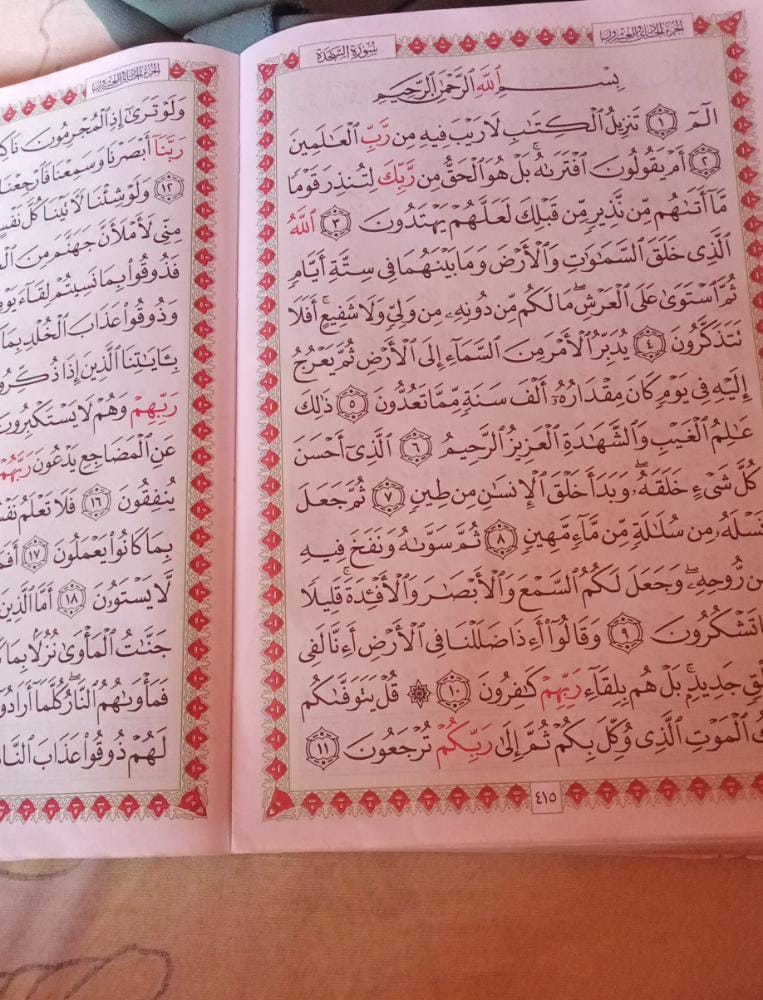 الجزء الحادي والعشرون
سورة السجدة
بِسْمِ ٱللَّهِ ٱلرَّحْمَٰنِ ٱلرَّحِيمِ
الٓمٓ ١ تَنزِيلُ ٱلْكِتَٰبِ لَا رَيْبَ فِيهِ مِن رَّبِّ ٱلْعَٰلَمِينَ
٢ أَمْ يَقُولُونَ ٱفْتَرَىٰهُ ۚ بَلْ هُوَ ٱلْحَقُّ مِن رَّبِّكَ لِتُنذِرَ قَوْمًا
مَّآ أَتَىٰهُم مِّن نَّذِيرٍ مِّن قَبْلِكَ لَعَلَّهُمْ يَهْتَدُونَ ٣ ٱللَّهُ
ٱلَّذِى خَلَقَ ٱلسَّمَٰوَٰتِ وَٱلْأَرْضَ وَمَا بَيْنَهُمَا فِى سِتَّةِ أَيَّامٍ
ثُمَّ ٱسْتَوَىٰ عَلَى ٱلْعَرْشِ ۖ مَا لَكُم مِّن دُونِهِۦ مِن وَلِىٍّ وَلَا شَفِيعٍ ۚ أَفَلَا
تَتَذَكَّرُونَ ٤ يُدَبِّرُ ٱلْأَمْرَ مِنَ ٱلسَّمَآءِ إِلَى ٱلْأَرْضِ ثُمَّ يَعْرُجُ
إِلَيْهِ فِى يَوْمٍ كَانَ مِقْدَارُهُۥٓ أَلْفَ سَنَةٍ مِّمَّا تَعُدُّونَ ٥ ذَٰلِكَ
عَٰلِمُ ٱلْغَيْبِ وَٱلشَّهَٰدَةِ ٱلْعَزِيزُ ٱلرَّحِيمُ ٦ ٱلَّذِىٓ أَحْسَنَ
كُلَّ شَىْءٍ خَلَقَهُۥ ۖ وَبَدَأَ خَلْقَ ٱلْإِنسَٰنِ مِن طِينٍ ٧ ثُمَّ جَعَلَ
نَسْلَهُۥ مِن سُلَٰلَةٍ مِّن مَّآءٍ مَّهِينٍ ٨ ثُمَّ سَوَّىٰهُ وَنَفَخَ فِيهِ
مِن رُّوحِهِۦ ۖ وَجَعَلَ لَكُمُ ٱلسَّمْعَ وَٱلْأَبْصَٰرَ وَٱلْأَفْـِٔدَةَ ۚ قَلِيلًا
تَشْكُرُونَ ٩ وَقَالُوٓا۟ أَءِذَا ضَلَلْنَا فِى ٱلْأَرْضِ أَءِنَّا لَفِى
جَدِيدٍۭ ۚ بَلْ هُم بِلِقَآءِ رَبِّهِمْ كَٰفِرُونَ ١٠ ۞ قُلْ يَتَوَفَّىٰكُم
ٱلْمَوْتِ ٱلَّذِى وُكِّلَ بِكُمْ ثُمَّ إِلَىٰ رَبِّكُمْ تُرْجَعُونَ ١١
٤١٥
الجزء الحادي والعشرون
وَلَوْ تَرَىٰٓ إِذِ ٱلْمُجْرِمُونَ
رَبَّنَآ أَبْصَرْنَا وَسَمِعْنَا فَٱرْجِعْنَا
١٢ وَلَوْ شِئْنَا لَءَاتَيْنَا كُلَّ نَفْسٍ
مِنِّى لَأَمْلَأَنَّ جَهَنَّمَ مِنَ
فَذُوقُوا۟ بِمَا نَسِيتُمْ لِقَآءَ
وَذُوقُوا۟ عَذَابَ ٱلْخُلْدِ بِمَا
بِـَٔايَٰتِنَا ٱلَّذِينَ إِذَا
رَبِّهِمْ وَهُمْ لَا يَسْتَكْبِرُونَ
عَنِ ٱلْمَضَاجِعِ يَدْعُونَ رَبَّهُمْ
يُنفِقُونَ ١٦ فَلَا تَعْلَمُ
بِمَا كَانُوا۟ يَعْمَلُونَ ١٧
لَّا يَسْتَوُۥنَ ١٨ أَمَّا ٱلَّذِينَ
جَنَّٰتُ ٱلْمَأْوَىٰ نُزُلًۢا بِمَا
فَمَأْوَىٰهُمُ ٱلنَّارُ ۖ كُلَّمَآ أَرَادُوٓا۟
لَهُمْ ذُوقُوا۟ عَذَابَ